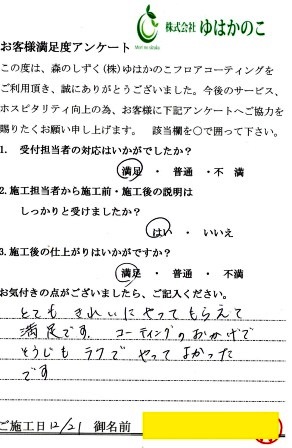 株式会社 ゆはかのこ
お客様満足度アンケート
この度は、森のしずく(株)ゆはかのこフロアコーティングを
ご利用頂き、誠にありがとうございました。今後のサービス、
ホスピタリティ向上の為、お客様に下記アンケートへご協力を
賜りたくお願い申し上げます。 該当欄を○で囲って下さい。
1. 受付担当者の対応はいかがでしたか?
満足 ・ 普通 ・不 満
2.施工担当者から施工前・施工後の説明は
しっかりと受けましたか?
はい ・ いいえ
3.施工後の仕上がりはいかがですか?
満足 ・ 普通 ・ 不満
お気付きの点がございましたら、ご記入ください。
とても きれいに やってもらえて
満足です. コーティングのおかげで
そうじも ラクで やって よかった
です
ご施工日12/21 御名前